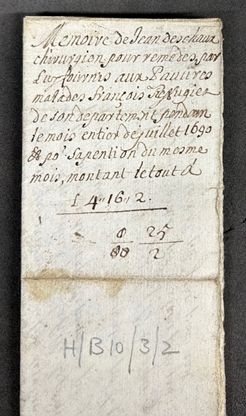 Memoire de Jean deschaux
chirurgion pour remedes par
Luy fournis aux Pauures
malades françois Refugiez
de son departement pendant
le mois entier de juillet 1690
& po.r sa pention du mesme
mois, montant le tout a
£ 4"16"2.
8 25
80 2
H/B10/3/2